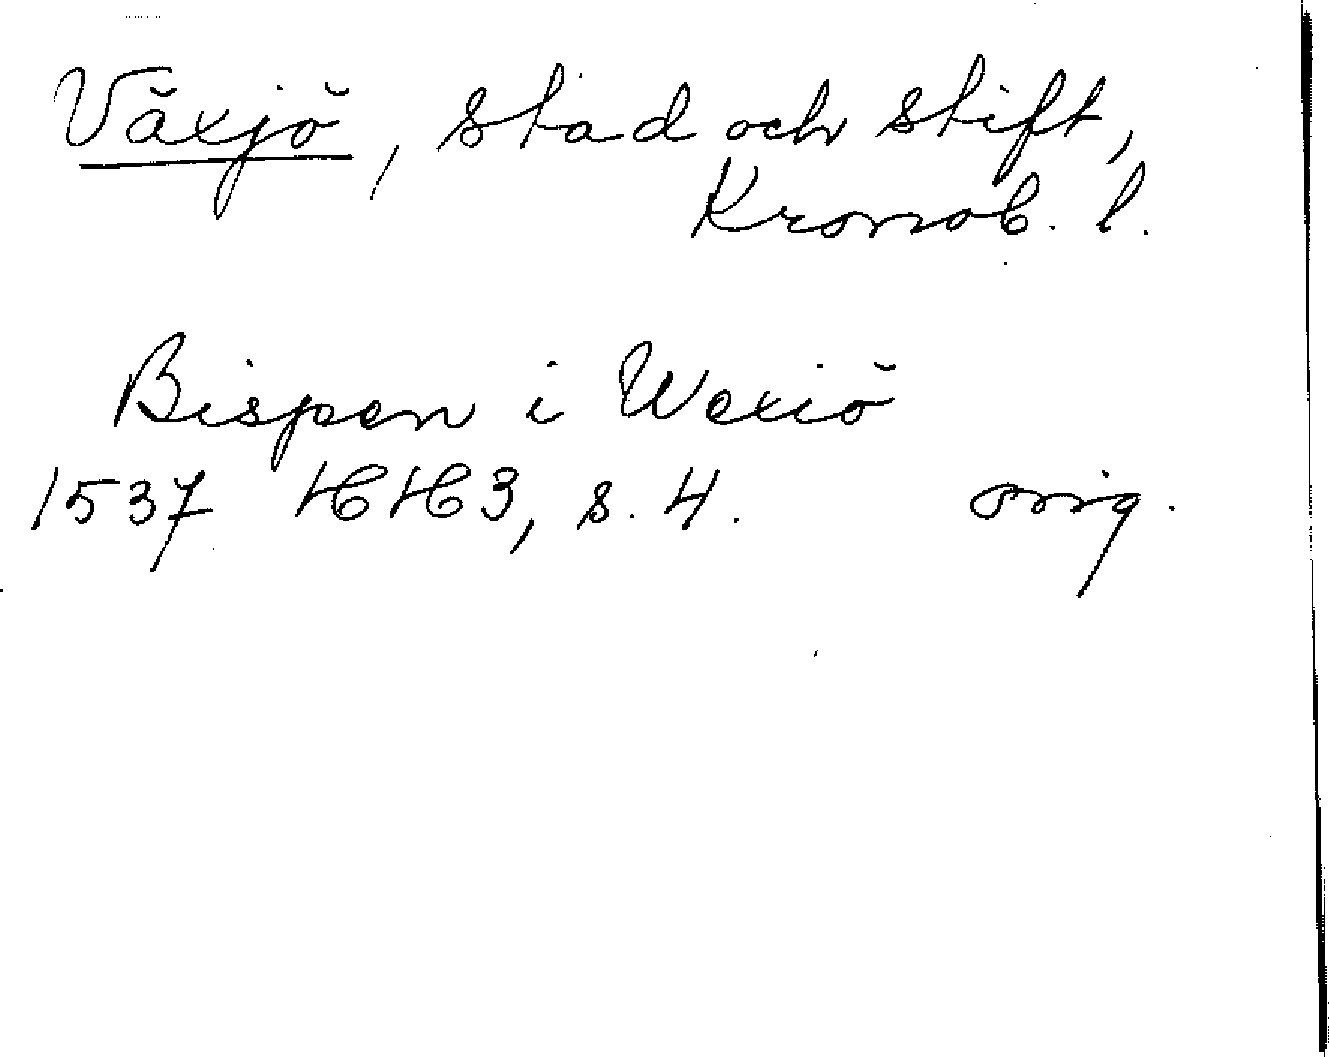 Växjö, stad och stift,
Kronob. l.
Bispen i Wexiö
1537 HH3, s. 4. orig.